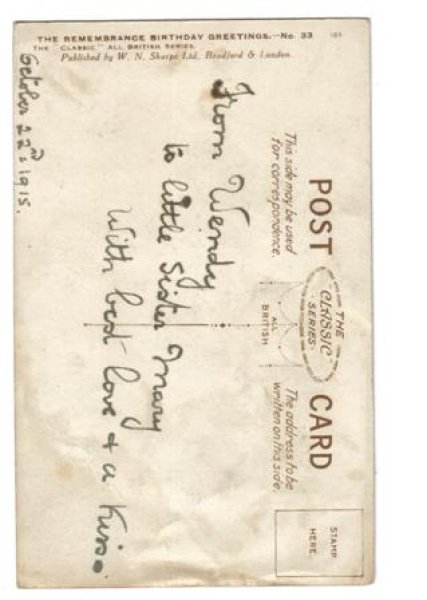 THE REMEMBRANCE BIRTHDAY GREETINGS.—No. 33
THE "CLASSIC" ALL BRITISH SERIES.
Published by W. N. Sharpe Ltd. Bradford & London.
POST CARD
THE
"CLASSIC"
SERIES
ALL
BRITISH
This side may be used
for correspondence.
The address to be
written on this side.
STAMP
HERE
October 22nd 1915.
From Wendy
to little sister Mary
With best love & a Kiss.